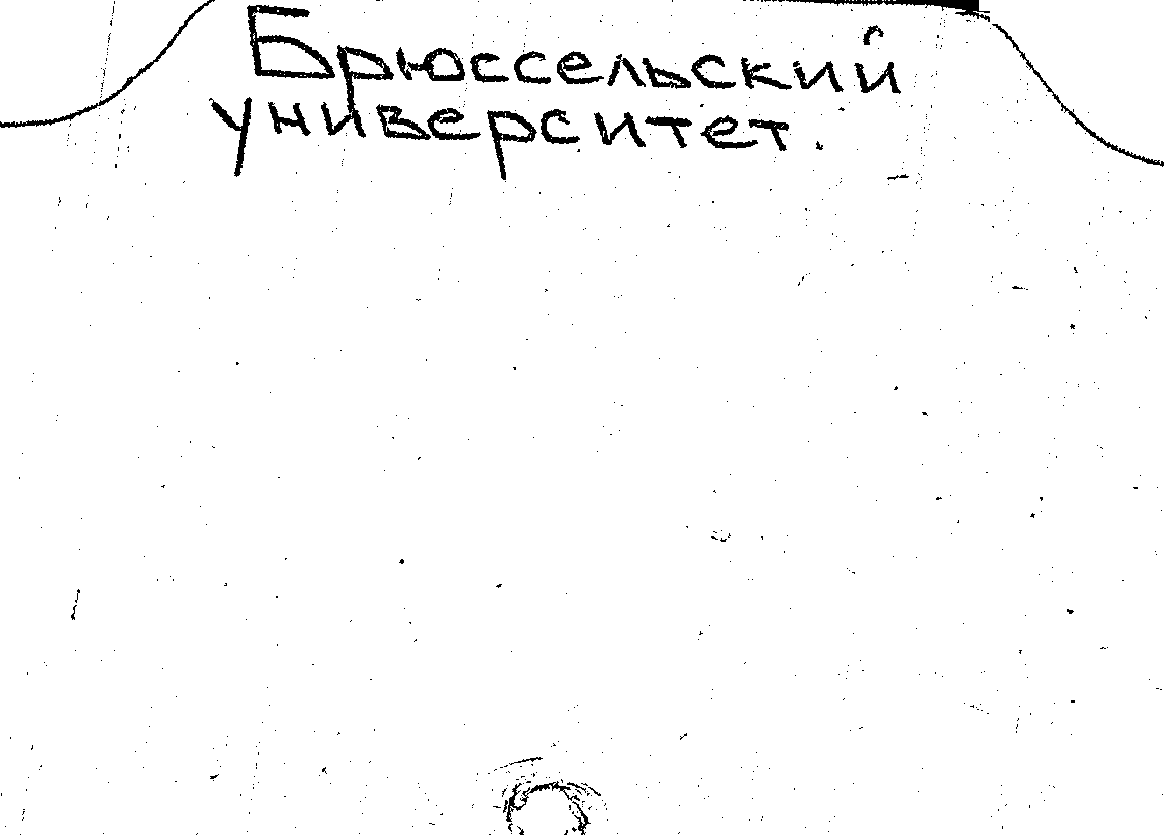 Брюссельский
университет.